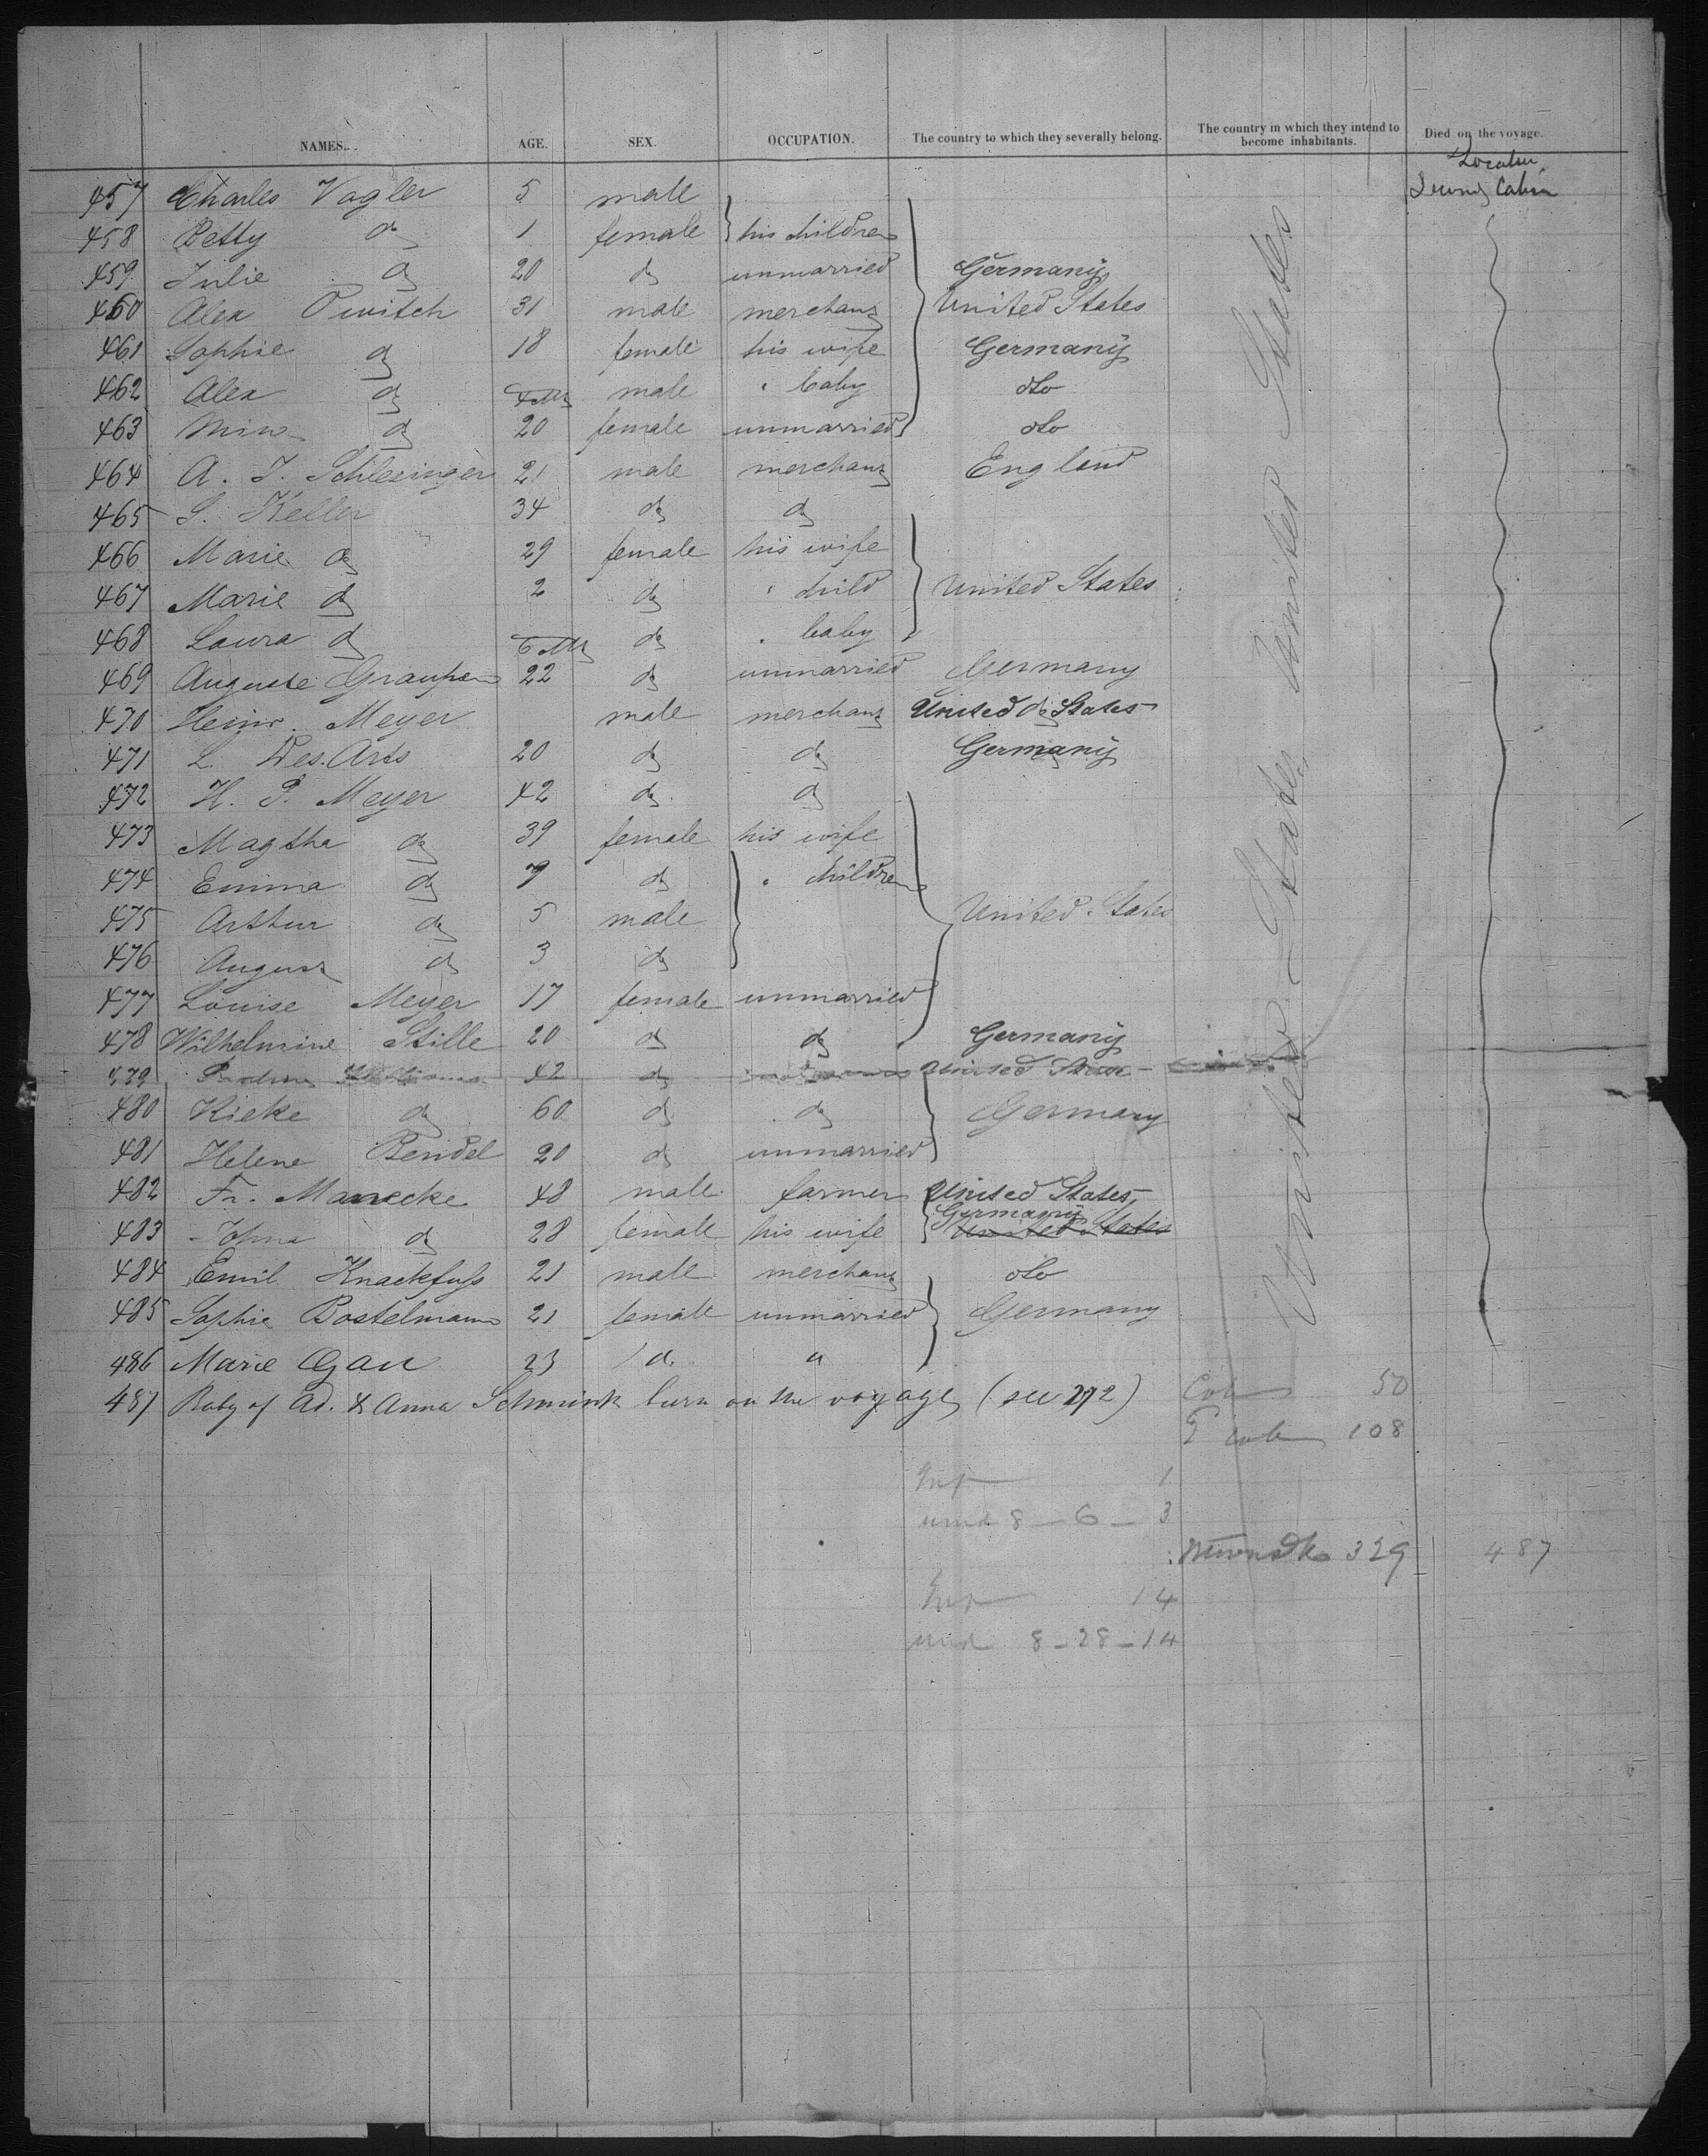 NAMES. AGE. SEX. OCCUPATION. The country to which they severally belong. The country in which they intend to become inhabitants. Died on the voyage.
Location
Second Cabin
457 Charles Vagler 5 male
458 Betty do 1 female his children
459 Julie do 20 do unmarried Germany
460 Alex Owitch 31 male merchant United States
461 Sophie do 18 female his wife Germany
462 Alex do male " baby do
463 Mina do 20 female unmarried do
464 A. J. Schlesinger 21 male merchant England
465 S. Keller 34 do do
466 Marie do 29 female his wife
467 Marie do 2 do " child United States
468 Laura do 6 M do " baby
469 Auguste Graupen 22 do unmarried Germany
470 Heinr. Meyer male merchant United States
471 L. Des.Arts 20 do do Germany
472 H. P. Meyer 42 do do
473 Magtha do 39 female his wife
474 Emma do 7 do " children
475 Arthur do 5 male United States
476 August do 3 do
477 Louise Meyer 17 female unmarried
478 Wilhelmine Stille 20 do do Germany
479 42 do United States
480 Kieke do 60 do do Germany
481 Helene Bendel 20 do unmarried
482 Fr. Marecke 48 male farmer United States
483 do 28 female his wife Germany United States
484 Emil Knackfuss 21 male merchant do
485 Sophie Bostelmann 21 female unmarried Germany
486 Marie Gau 23 do "
487 Baby of Ad. & Anna Schmink born on the voyage (see 272)
United States United States
Cab 50
2 cab 108
Inf 1
und 8 - 6 - 3
329 487
Inf 14
und 8 - 28 - 14